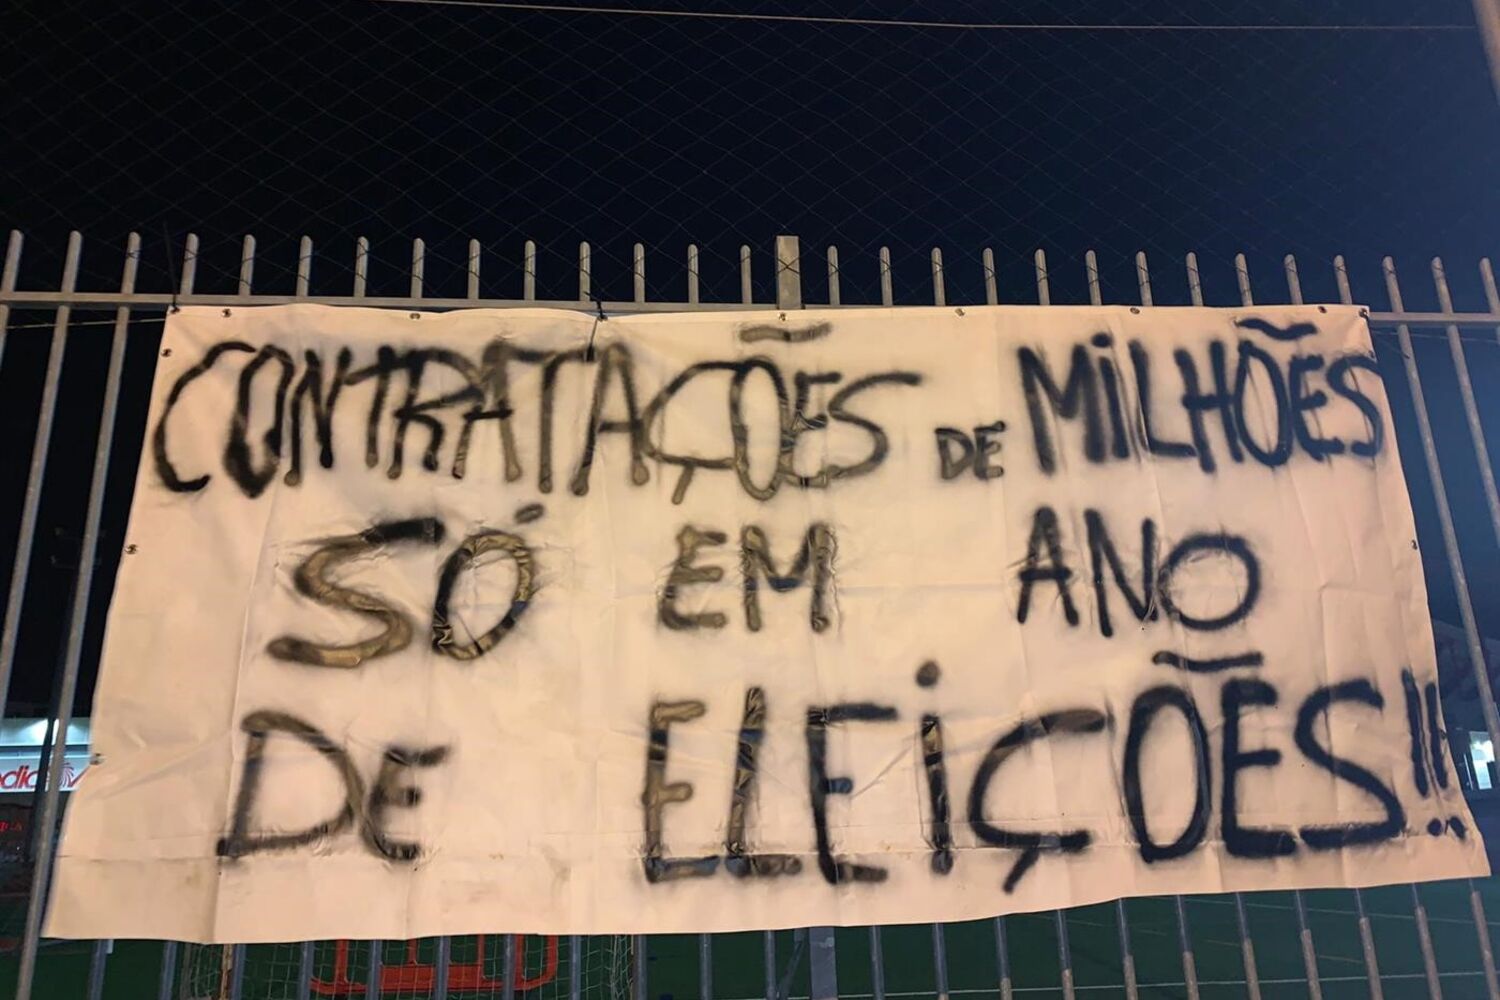 CONTRATAÇÕES DE MiLHÕES
SÓ EM ANO
DE ELEiÇÕES!!